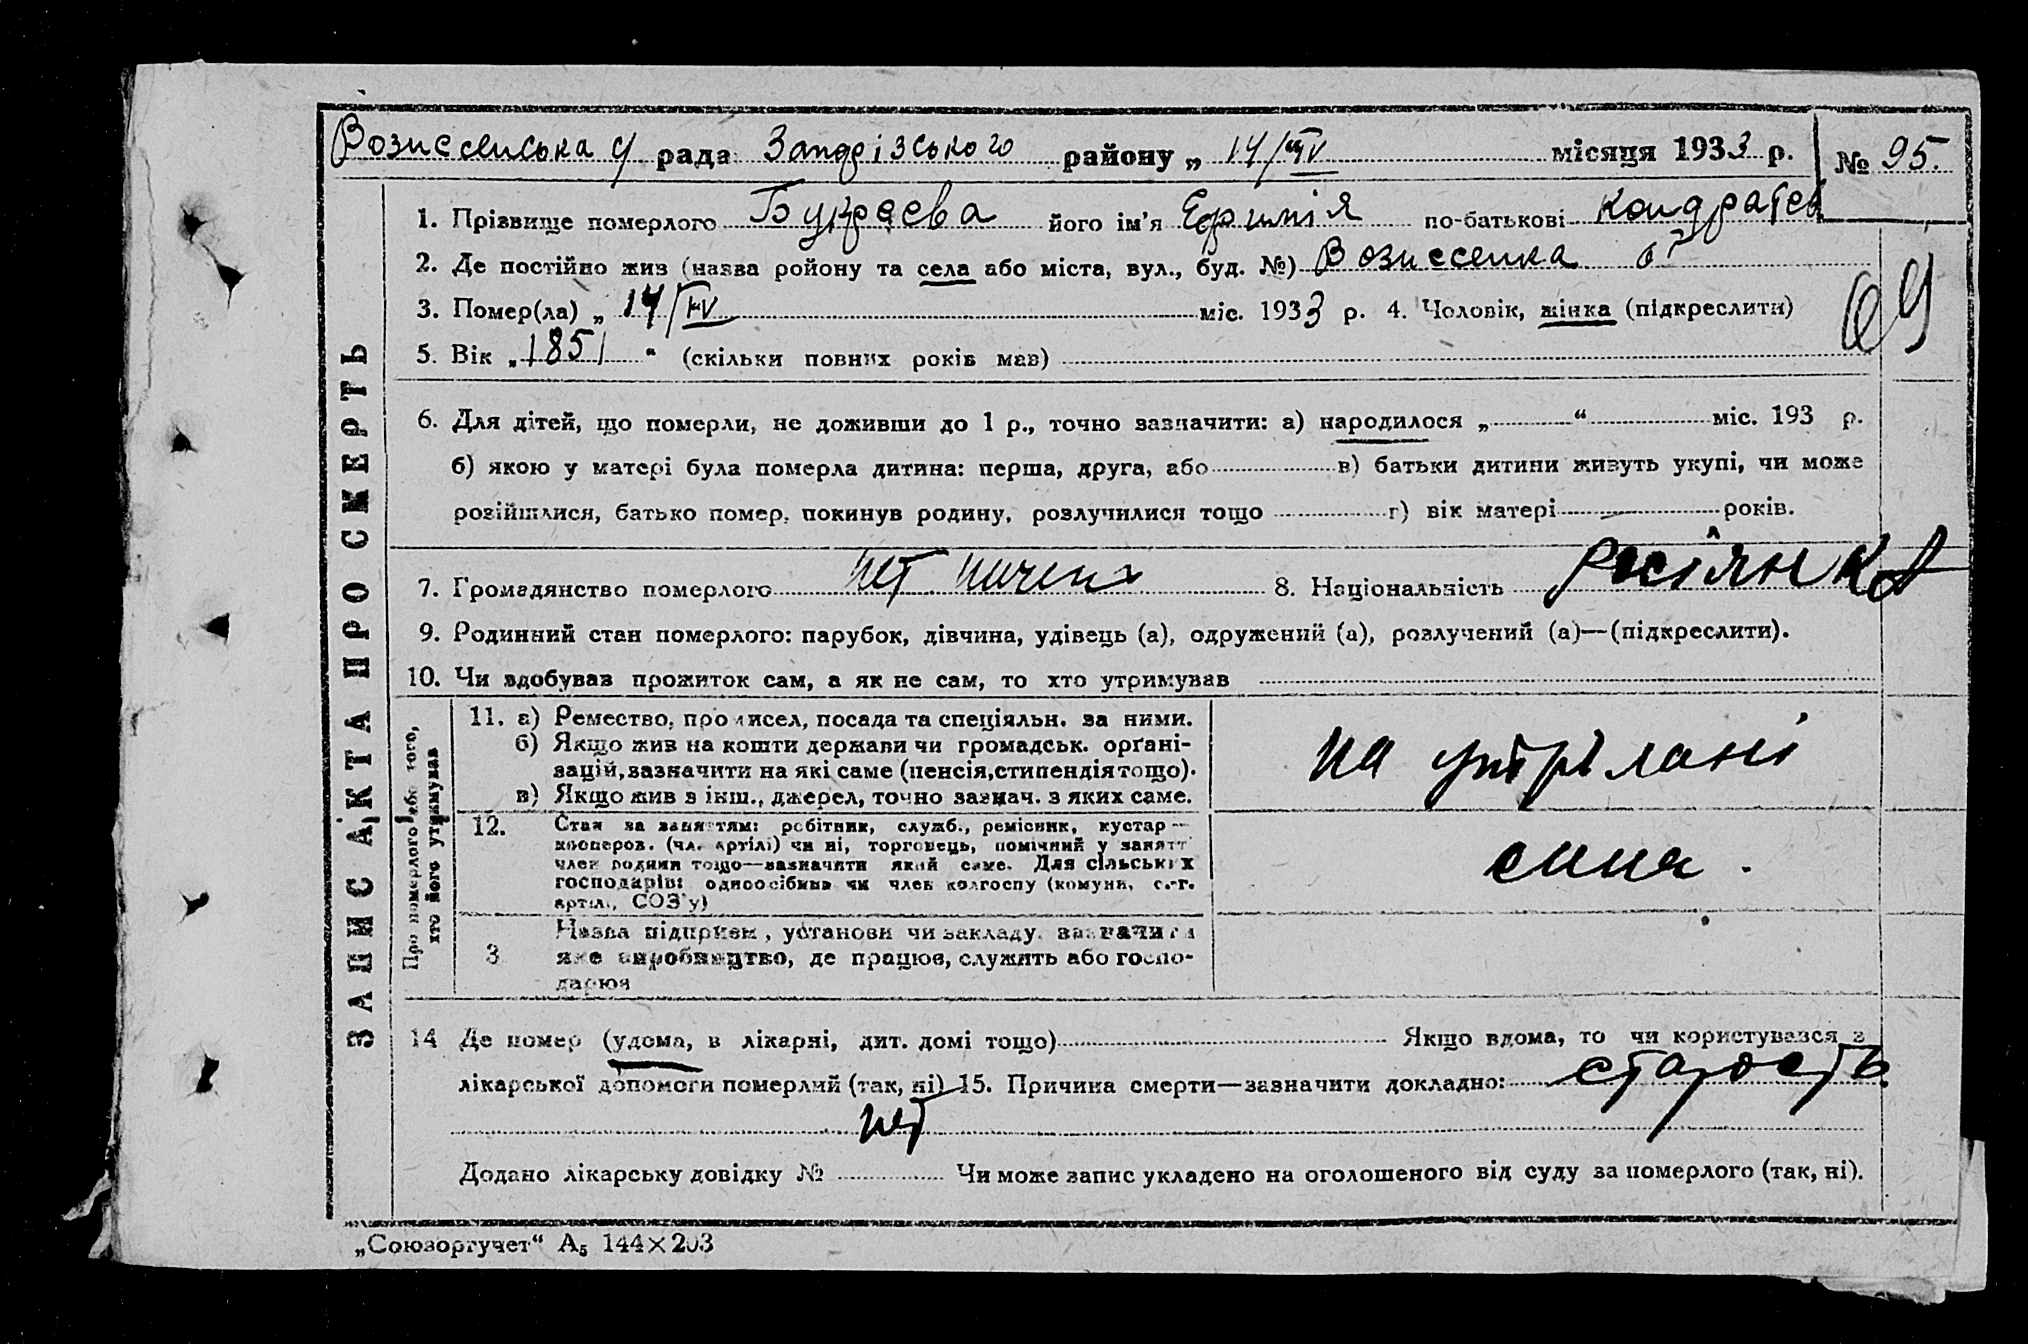 Вознесенська с/ рада Запорізського району „ 14/IV місяця 1933 р. № 95.
1. Прізвище померлого його ім'я по-батькові Кондратєв
2. Де постійно жив (назва ройону та села або міста, вул., буд. №) Вознесенка
3. Помер(ла) „ 14/IV міс. 1933 р. 4. Чоловік, жінка (підкреслити)
5. Вік „ 1851 “ (скільки повних років мав)
6. Для дітей, що померли, не доживши до 1 р., точно зазначити: а) народилося „ “ міс. 193 р.
б) якою у матері була померла дитина: перша, друга, або в) батьки дитини живуть укупі, чи може
розійшлися, батько помер, покинув родину, розлучилися тощо г) вік матері років.
7. Громадянство померлого нет 8. Національність росіянка
9. Родинний стан померлого: парубок, дівчина, удівець (а), одружений (а), розлучений (а)—(підкреслити).
10. Чи здобував прожиток сам, а як не сам, то хто утримував
ЗАПИС АКТА ПРО СМЕРТЬ
Про померлого або того,
хто його утримував
11. а) Ремество, промисел, посада та спеціяльн. за ними.
б) Якщо жив на кошти держави чи громадськ. орґані-
зацій, зазначити на які саме (пенсія, стипендія тощо).
в) Якщо жив з інш., джерел, точно зазнач. з яких саме.
на утрімані
12. Стан за заняттям: робітник, служб., ремісник, кустар—
кооперов. (чл. артілі) чи ні, торговець, помічний у занятт
член родини тощо—зазначити який саме. Для сільських
господарів: одноосібник чи член колгоспу (комуни, с.-г.
артіл., СОЗ'у)
сина.
3 Назва підприєм, установи чи закладу. зазначити
яке виробництво, де працює, служить або госпо-
дарює
14 Де помер (удома, в лікарні, дит. домі тощо) Якщо вдома, то чи користувався з
лікарської допомоги померлий (так, ні) 15. Причина смерти—зазначити докладно: старость.
нет
Додано лікарську довідку № Чи може запис укладено на оголошеного від суду за померлого (так, ні).
„Союзоргучет“ А₅ 144×203